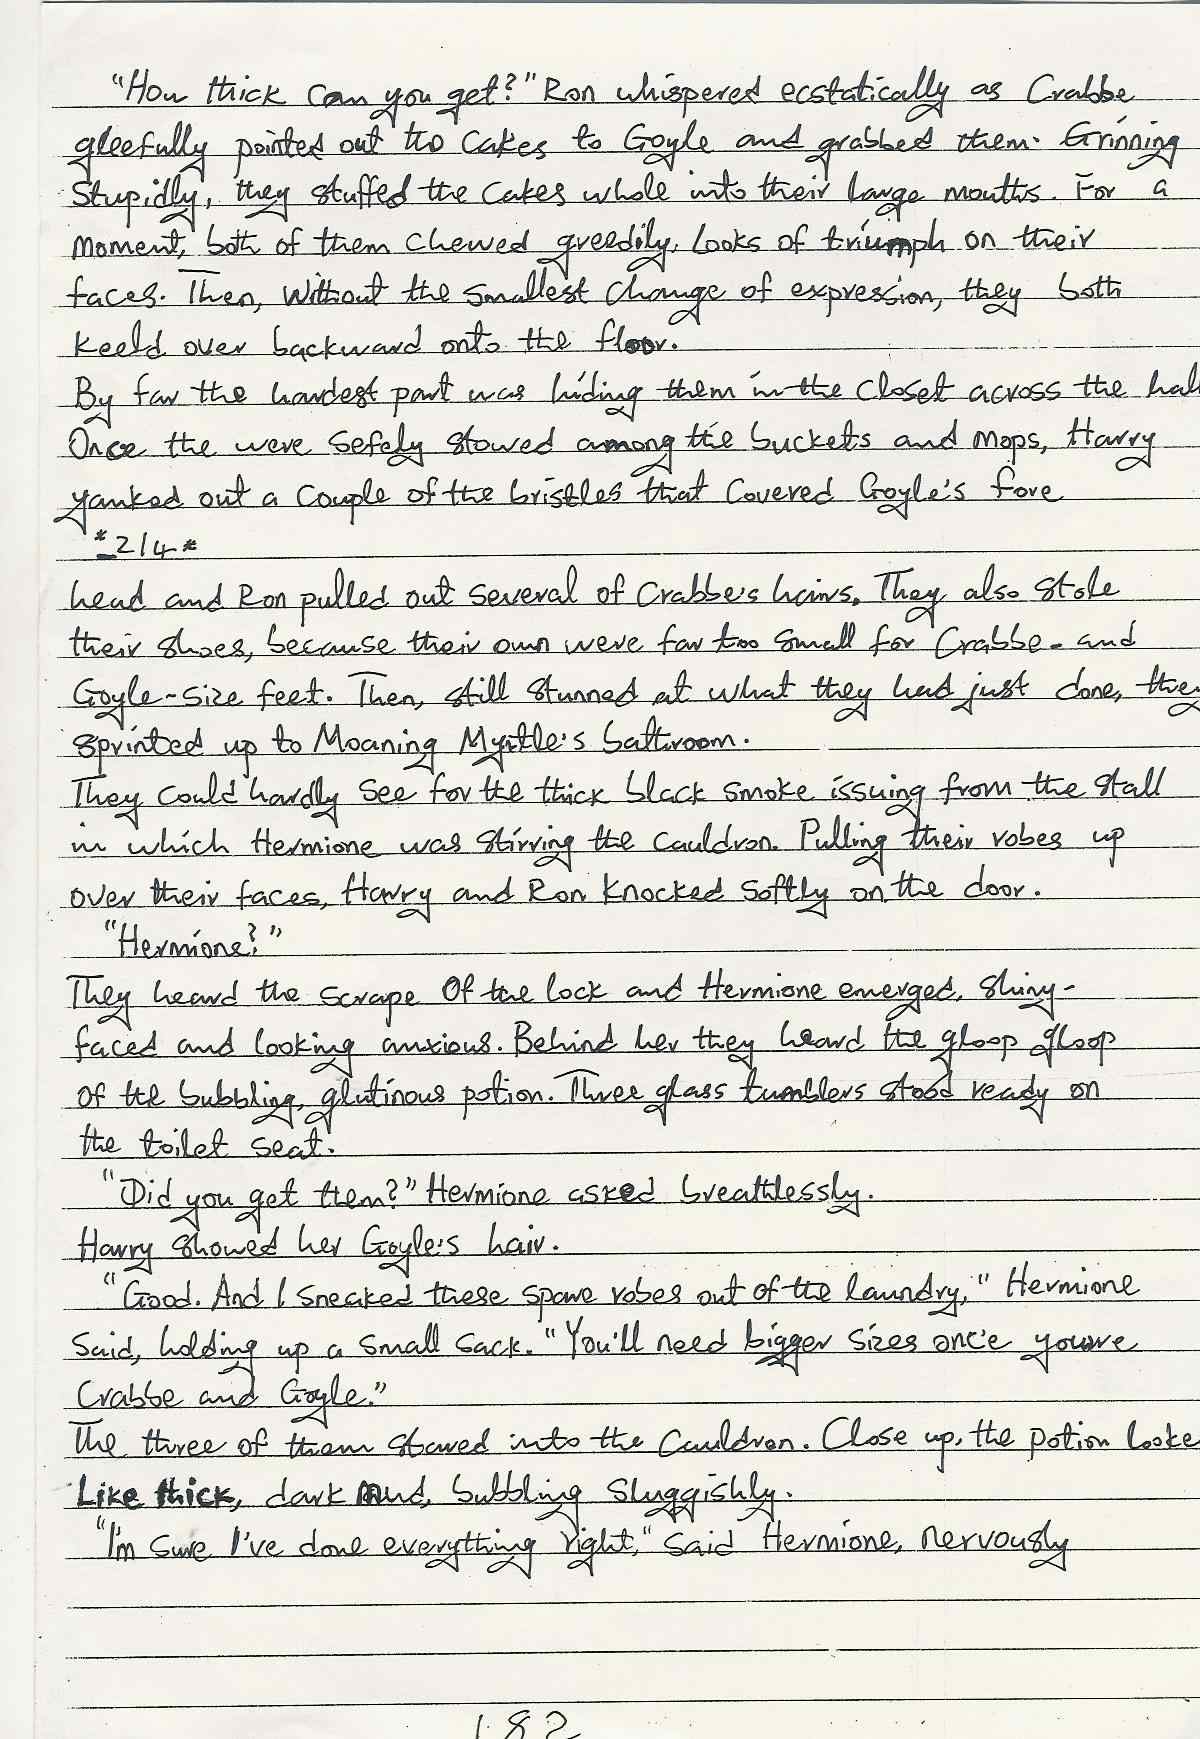 "How thick can you get?" Ron whispered ecstatically as Crabbe
gleefully pointed out the cakes to Goyle and grabbed them. Grinning
Stupidly, they stuffed the cakes whole into their large mouths. For a
moment, both of them chewed greedily, looks of triumph on their
faces. Then, without the smallest change of expression, they both
keeld over backward onto the floor.
By far the hardest part was hiding them in the closet across the hall
Once the were sefely stowed among the buckets and mops, Harry
yanked out a couple of the bristles that covered Goyle's fore
*214*
head and Ron pulled out several of Crabbe's hairs. They also stole
their shoes, because their own were far too small for Crabbe- and
Goyle-size feet. Then, still stunned at what they had just done, they
sprinted up to Moaning Myrtle's bathroom.
They could hardly see for the thick black smoke issuing from the stall
in which Hermione was stirring the cauldron. Pulling their robes up
over their faces, Harry and Ron knocked softly on the door.
"Hermione?"
They heard the scrape of the lock and Hermione emerged, shiny-
faced and looking anxious. Behind her they heard the gloop gloop
of the bubbling, glutinous potion. Three glass tumblers stood ready on
the toilet seat.
"Did you get them?" Hermione asked breathlessly.
Harry showed her Goyle's hair.
"Good. And I sneaked these spare robes out of the laundry," Hermione
said, holding up a small sack. "You'll need bigger sizes once you're
Crabbe and Goyle."
The three of them stared into the cauldron. Close up, the potion looke
Like thick, dark mud, bubbling sluggishly.
"I'm sure I've done everything right," said Hermione, nervously
182